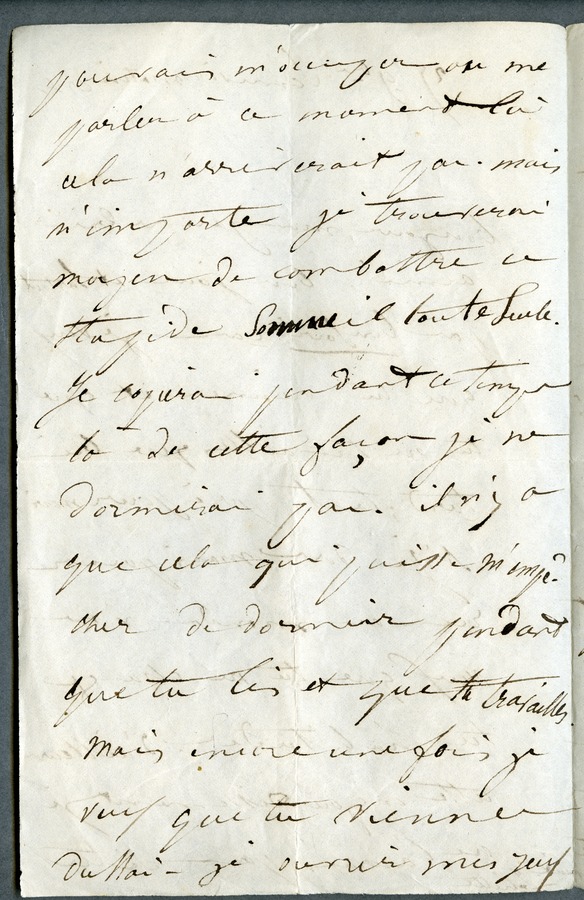 pourrais m'occuper ou me
parler à ce moment là
cela n'arriverait pas. mais
n'importe je trouverai
moyen de combattre ce
stupide sommeil toute seule.
Je copierai pendant ce temps
là de cette façon je ne
dormirai pas. il n'y a
que cela qui puisse m'empê-
cher de dormir pendant
que tu lis et que tu travailles
mais encore une fois je
veux que tu viennes
je ouvrir mes yeux